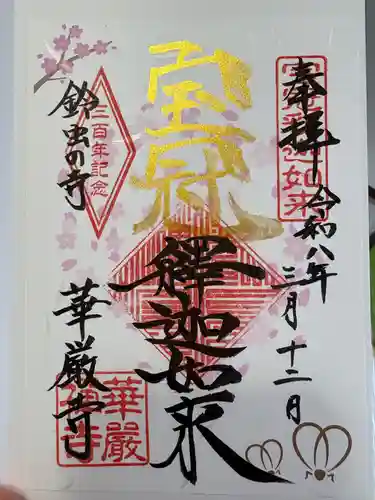 奉拝
令和八年
三月十二日
宝冠
釋迦如来
三百年記念
鈴虫の寺
華厳寺